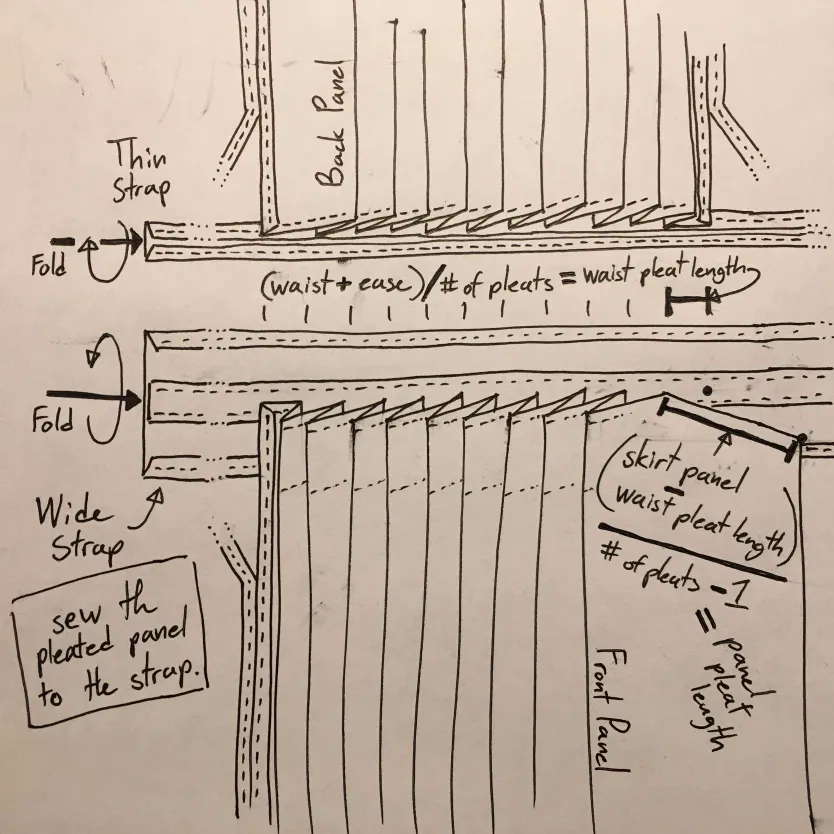 Back Panel
Thin
Strap
Fold
(waist + ease) / # of pleats = waist pleat length
Fold
Wide
Strap
(skirt panel
-
waist pleat length)
# of pleats - 1
= panel
pleat
length
Front Panel
sew th
pleated panel
to the strap.